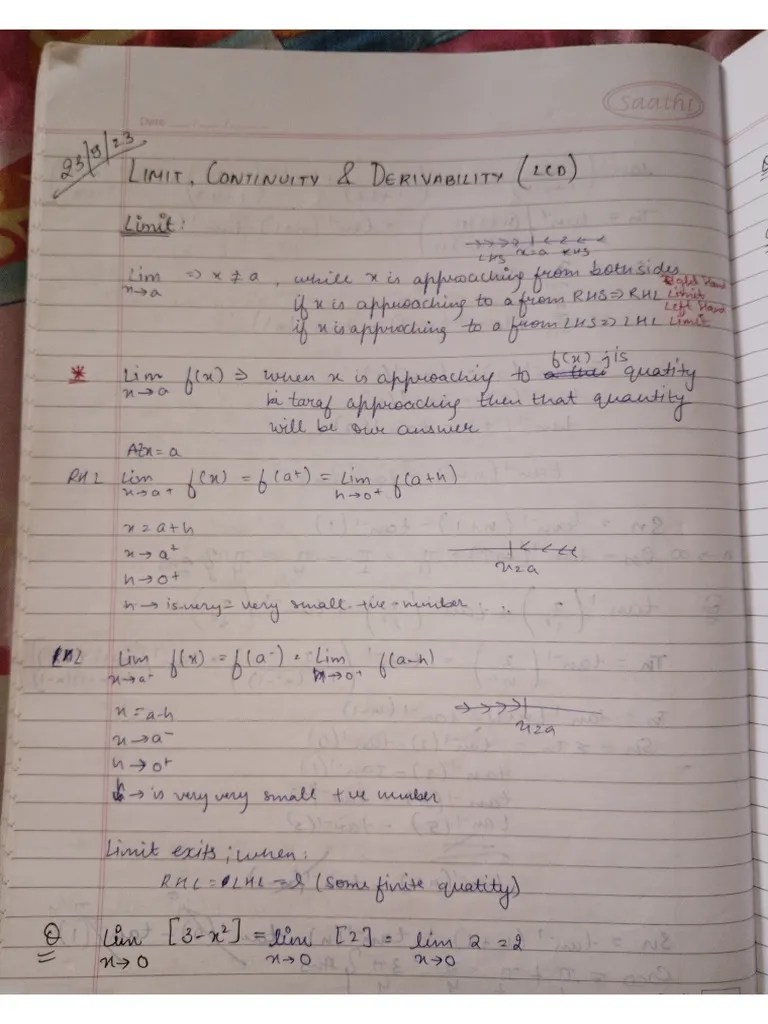 saathi
Date
23/9/23
LIMIT, CONTINUITY & DERIVABILITY (LCD)
Limit:
LHS x=a RHS
Lim x→a ⇒ x ≠ a, while x is approaching from both sides
if x is approaching to a from RHS ⇒ RHL Right Hand Limit
if x is approching to a from LHS ⇒ LHL Left Hand Limit
* Lim x→a f(x) ⇒ when x is approaching to f(x) jis quatity
ki taraf approaching then that quantity
will be our answer
At x = a
RHL Lim x→a+ f(x) = f(a+) = Lim h→0+ f(a+h)
x = a+h
x → a+
x=a
h → 0+
h → is very = very small +ve number
LHL Lim x→a- f(x) = f(a-) = Lim h→0+ f(a-h)
x = a-h
x → a-
x=a
h → 0+
h → is very very small +ve number
Limit exits; when:
RHL = LHL = l (some finite quatity)
Q lim x→0 [3-x²] = lim x→0 [2] = lim x→0 2 = 2